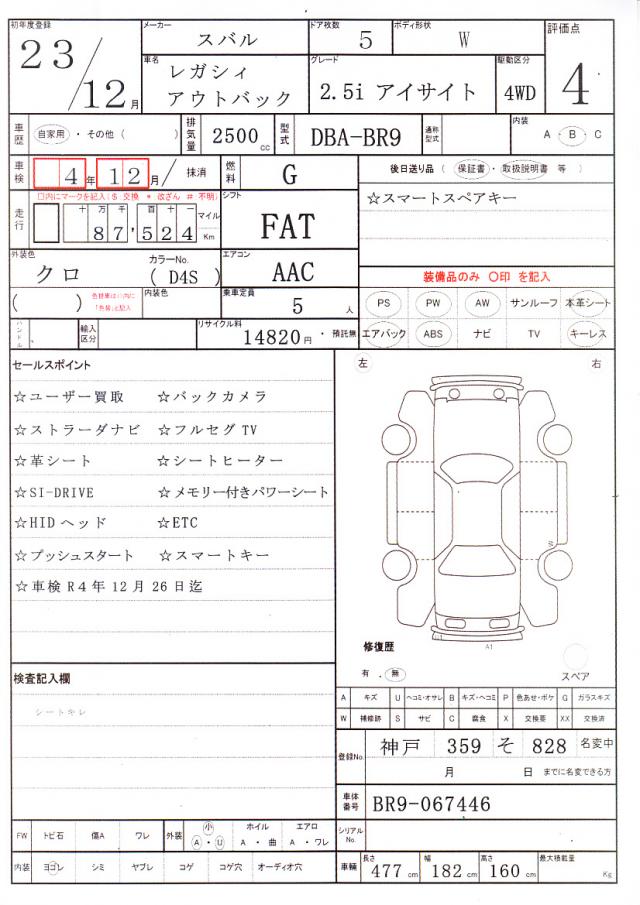 初年度登録 メーカー スバル ドア枚数 5 ボディ形状 W 評価点
23/12月 車名 レガシィ アウトバック グレード 2.5i アイサイト 駆動区分 4WD 4
車歴 自家用 ・ その他 ( ) 排気量 2500cc 型式 DBA-BR9 通称型式 内装 A ・ B ・ C
車検 4年 12月 / 抹消 燃料 G 後日送り品 ( 保証書 ・ 取扱説明書 等 )
走行 □内にマークを記入 ($ 交換 * 改ざん # 不明) シフト FAT ☆スマートスペアキー
十 万 千 百 十 一 マイル
87,524 Km
外装色 クロ カラーNo. ( D4S ) エアコン AAC 装備品のみ 〇印 を記入
( ) 色替車は( )内に「色替」と記入 内装色 乗車定員 5 人 PS PW AW サンルーフ 本革シート
ハンドル 輸入区分 リサイクル料 14820円 ・ 預託無 エアバック ABS ナビ TV キーレス
セールスポイント 左 右
☆ユーザー買取 ☆バックカメラ
☆ストラーダナビ ☆フルセグTV
☆革シート ☆シートヒーター
☆SI-DRIVE ☆メモリー付きパワーシート
☆HIDヘッド ☆ETC
W
☆プッシュスタート ☆スマートキー
☆車検R4年12月26日迄
A1
修復歴
有 ・ 無 スペア
検査記入欄
シートキレ
A キズ U ヘコミ・オサレ B キズ・ヘコミ P 色あせ・ボケ G ガラスキズ
W 補修跡 S サビ C 腐食 X 交換要 XX 交換済
登録No. 神戸 359 そ 828 名変中
月 日 までに名変できる方
車体番号 BR9-067446
FW トビ石 傷A ワレ 外装 小 A ・ U ホイル A ・ 曲 エアロ A ・ ワレ シリアルNo.
内装 ヨゴレ シミ ヤブレ コゲ コゲ穴 オーディオ穴 車輌 長さ 477cm 幅 182cm 高さ 160cm 最大積載量 Kg